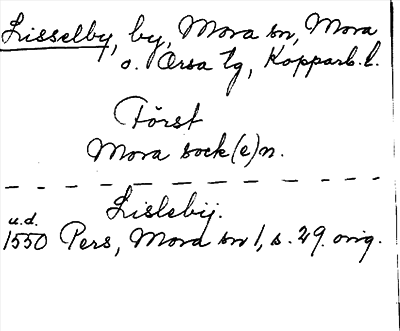 Lisselby, by, Mora sn, Mora
o. Orsa tg, Kopparb. l.
Först
Mora sock(e)n.
Lislebij.
u.d.
1550 Pers, Mora sn 1, s. 29. orig.